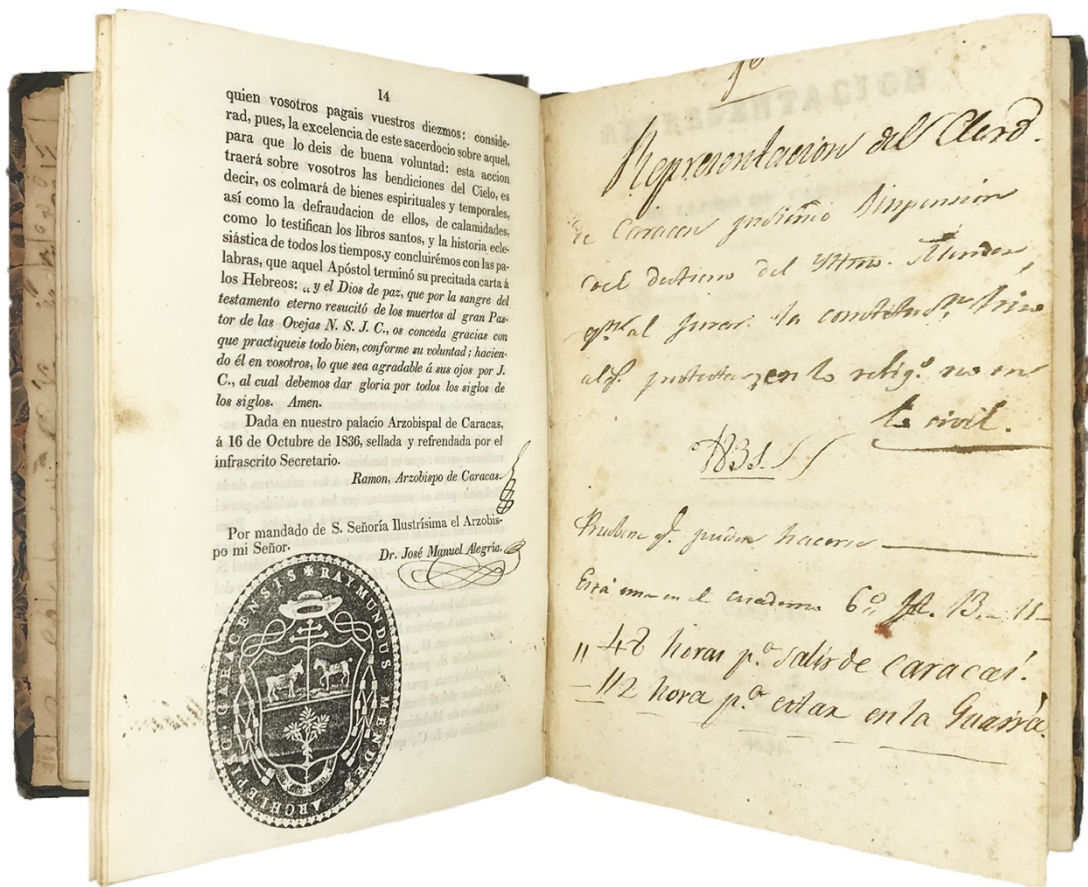 14
quien vosotros pagais vuestros diezmos: conside-
rad, pues, la excelencia de este sacerdocio sobre aquel,
para que lo deis de buena voluntad: esta accion
traerá sobre vosotros las bendiciones del Cielo, es
decir, os colmará de bienes espirituales y temporales,
así como la defraudacion de ellos, de calamidades,
como lo testifican los libros santos, y la historia ecle-
siástica de todos los tiempos, y concluirémos con las pa-
labras, que aquel Apóstol terminó su precitada carta á
los Hebreos: „y el Dios de paz, que por la sangre del
testamento eterno resucitó de los muertos al gran Pas-
tor de las Ovejas N. S. J. C., os conceda gracias con
que practiqueis todo bien, conforme su voluntad; hacien-
do él en vosotros, lo que sea agradable á sus ojos por J.
C., al cual debemos dar gloria por todos los siglos de
los siglos. Amen.
Dada en nuestro palacio Arzobispal de Caracas,
á 16 de Octubre de 1836, sellada y refrendada por el
infrascrito Secretario.
Ramon, Arzobispo de Caracas.
Por mandado de S. Señoría Ilustrísima el Arzobis-
po mi Señor.
Dr. José Manuel Alegría.
RAYMUNDUS MENDEZ ARCHIEP.
Representacion del Clero
de Caracas pidiendo
del destierro del Yttmo.
al jurar la
en lo relig.º no en
lo civil.
pueden hacerse
en el cuaderno 6.º
" 48 horas p.ª salir de Caracas.
hora p.ª estar en la Guaira.